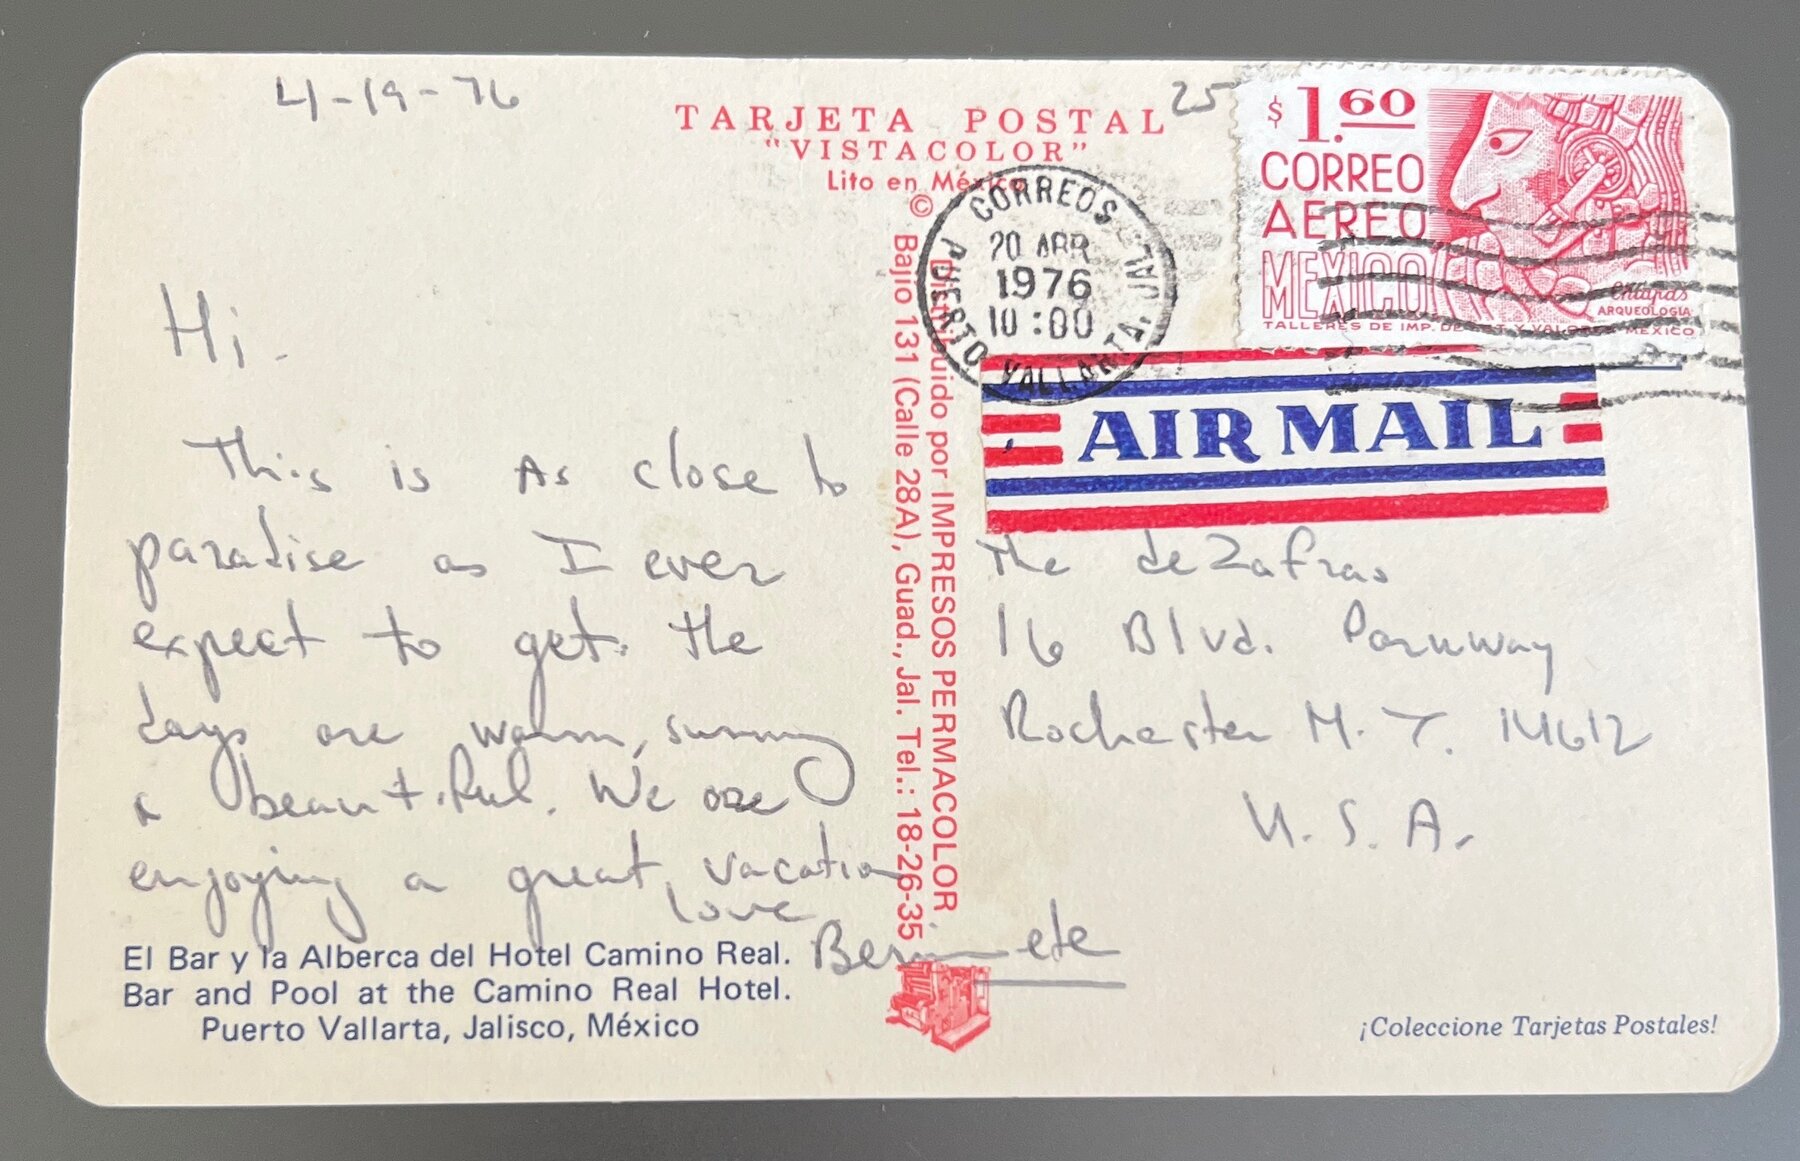 4-19-76
TARJETA POSTAL
"VISTACOLOR"
Lito en México
25
$1.60
CORREO
AEREO
MEXICO
Chiapas
ARQUEOLOGIA
TALLERES DE IMP. DE EST. Y VALORES MEXICO
CORREOS
20 ABR
1976
10:00
PUERTO VALLARTA, JAL.
AIR MAIL
Hi.
This is as close to
paradise as I ever
expect to get. The
days are warm, sunny
& beautiful. We are
enjoying a great vacation
Love
© Distribuido por IMPRESOS PERMACOLOR
Bajio 131 (Calle 28A), Guad., Jal. Tel.: 18-26-35
The deZafras
16 Blvd. Parkway
Rochester N.Y. 14612
U.S.A.
El Bar y la Alberca del Hotel Camino Real.
Bar and Pool at the Camino Real Hotel.
Puerto Vallarta, Jalisco, México
¡Coleccione Tarjetas Postales!